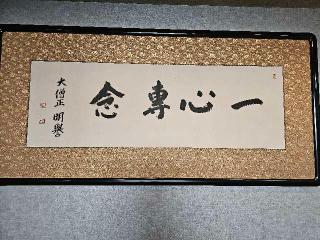 一心專念
大僧正 明譽